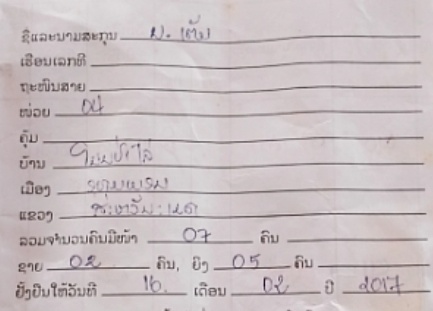 ຊື່ແລະນາມສະກຸນ ນ. ເຕັມ
ເຮືອນເລກທີ
ຖະໜົນສາຍ
ໜ່ວຍ 04
ຄຸ້ມ
ບ້ານ
ເມືອງ
ແຂວງ ສະຫວັນນະເຂດ
ລວມຈຳນວນຄົນມີໜ້າ 07 ຄົນ
ຊາຍ 02 ຄົນ, ຍິງ 05 ຄົນ
ຢັ້ງຢືນໃຫ້ວັນທີ 16 ເດືອນ 02 ປີ 2017